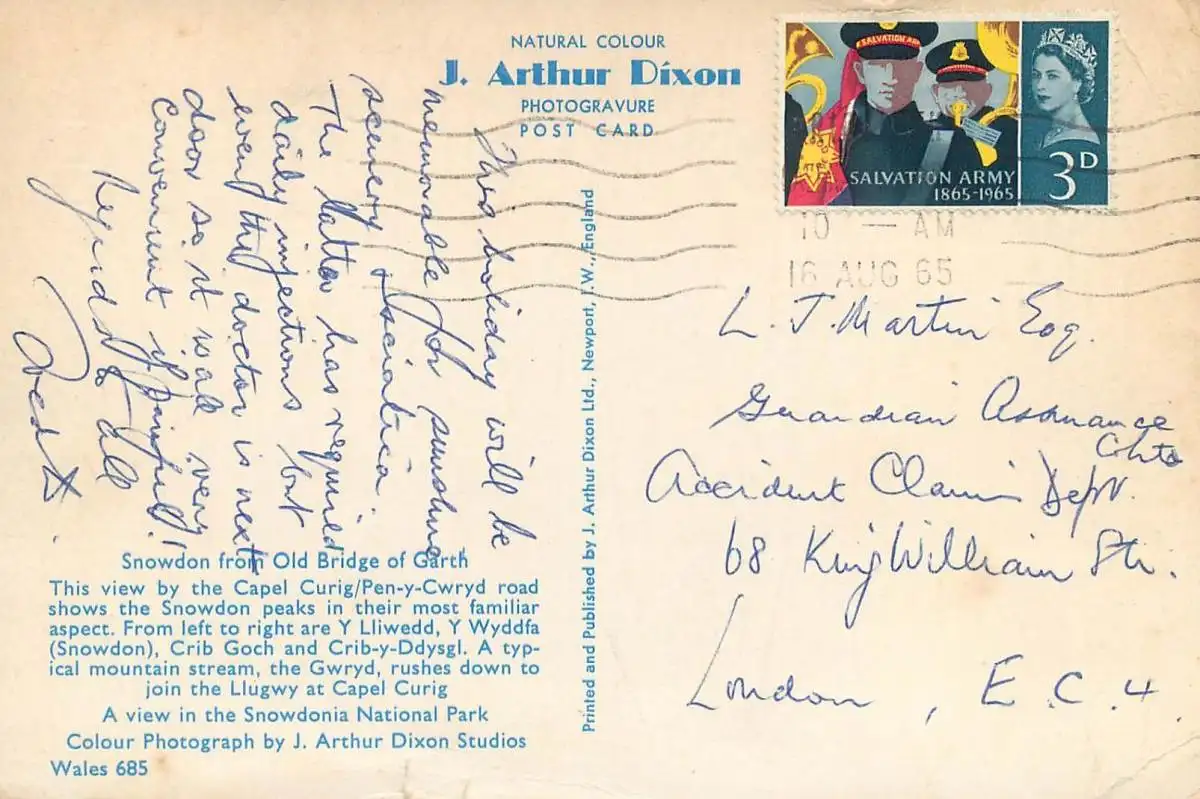 NATURAL COLOUR
J. Arthur Dixon
PHOTOGRAVURE
POST CARD
SALVATION ARMY
SALVATION ARMY
1865-1965
3D
10 — AM
16 AUG 65
This holiday will be
memorable for sunshine
scenery & sciatica.
The latter has required
daily injections but
even the doctor is next
door so it was very
convenient if painful!
Regards to all
L. J. Martin Esq.
Guardian Assurance
Co Ltd
Accident Claims Dept.
68 King William Str.
London, E.C.4
Printed and Published by J. Arthur Dixon Ltd., Newport, I.W., England
Snowdon from Old Bridge of Garth
This view by the Capel Curig/Pen-y-Cwryd road
shows the Snowdon peaks in their most familiar
aspect. From left to right are Y Lliwedd, Y Wyddfa
(Snowdon), Crib Goch and Crib-y-Ddysgl. A typ-
ical mountain stream, the Gwryd, rushes down to
join the Llugwy at Capel Curig
A view in the Snowdonia National Park
Colour Photograph by J. Arthur Dixon Studios
Wales 685